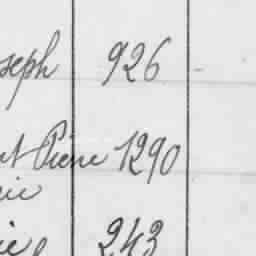 seph 926
nt Pierre 1290
rie
ie 243